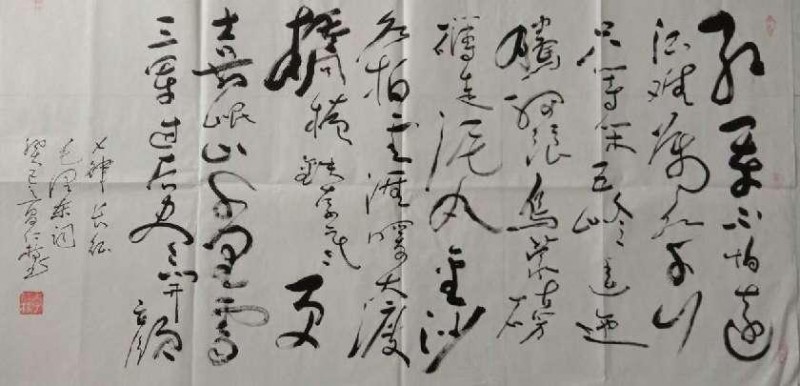 红军不怕远
征难万水千山
只等闲五岭逶迤
腾细浪乌蒙磅
礴走泥丸金沙
水拍云崖暖大渡
桥横铁索寒更
喜岷山千里雪
三军过后尽开颜
七律长征
毛泽东词
癸巳之夏仁